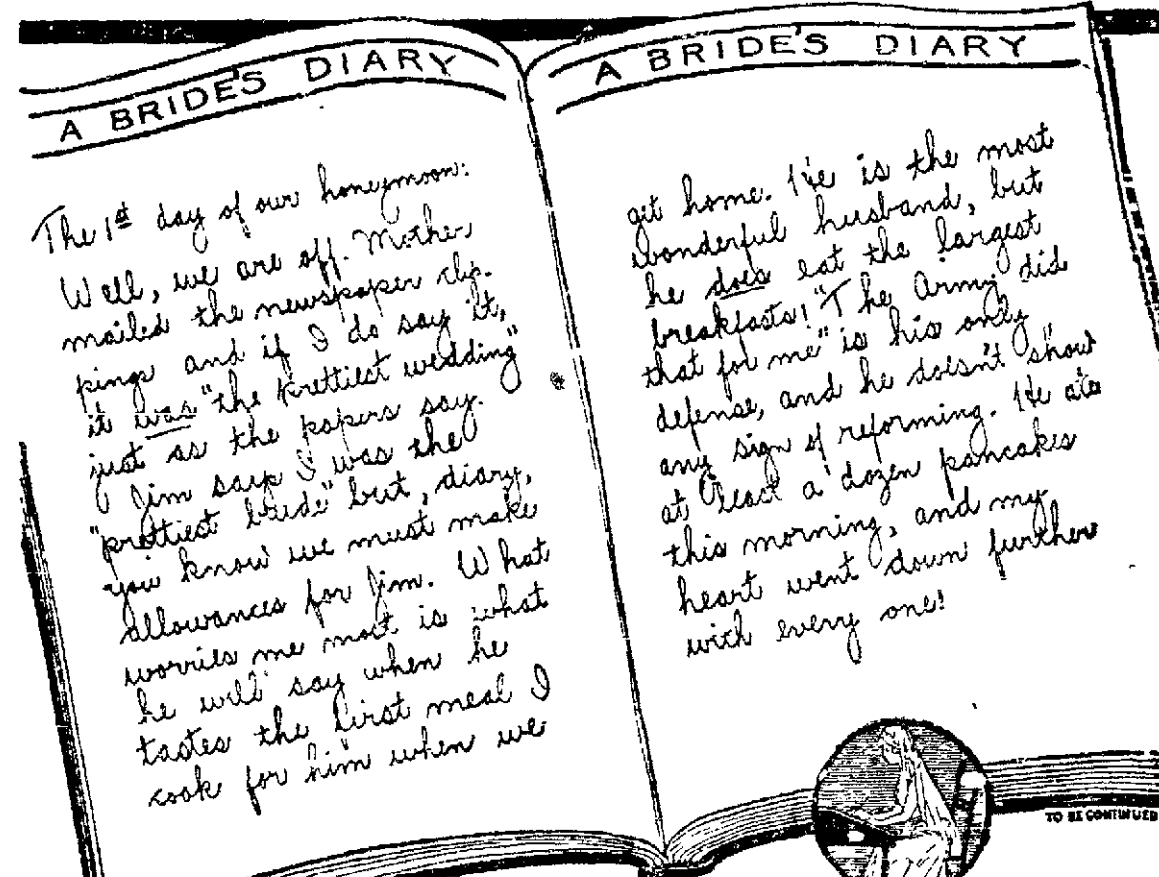 A BRIDE'S DIARY
The 1st day of our honeymoon:
Well, we are off. Mother
mailed the newspaper clip-
pings and if I do say it,
it was "the prettiest wedding"
just as the papers say.
Jim says I was the
"prettiest bride" but, diary,
you know we must make
allowances for Jim. What
worries me most is what
he will say when he
tastes the first meal I
cook for him when we
A BRIDE'S DIARY
get home. He is the most
wonderful husband, but
he does eat the largest
breakfasts! "The Army did
that for me" is his only
defense, and he doesn't show
any sign of reforming. He ate
at least a dozen pancakes
this morning, and my
heart went down further
with every one!
TO BE CONTINUED